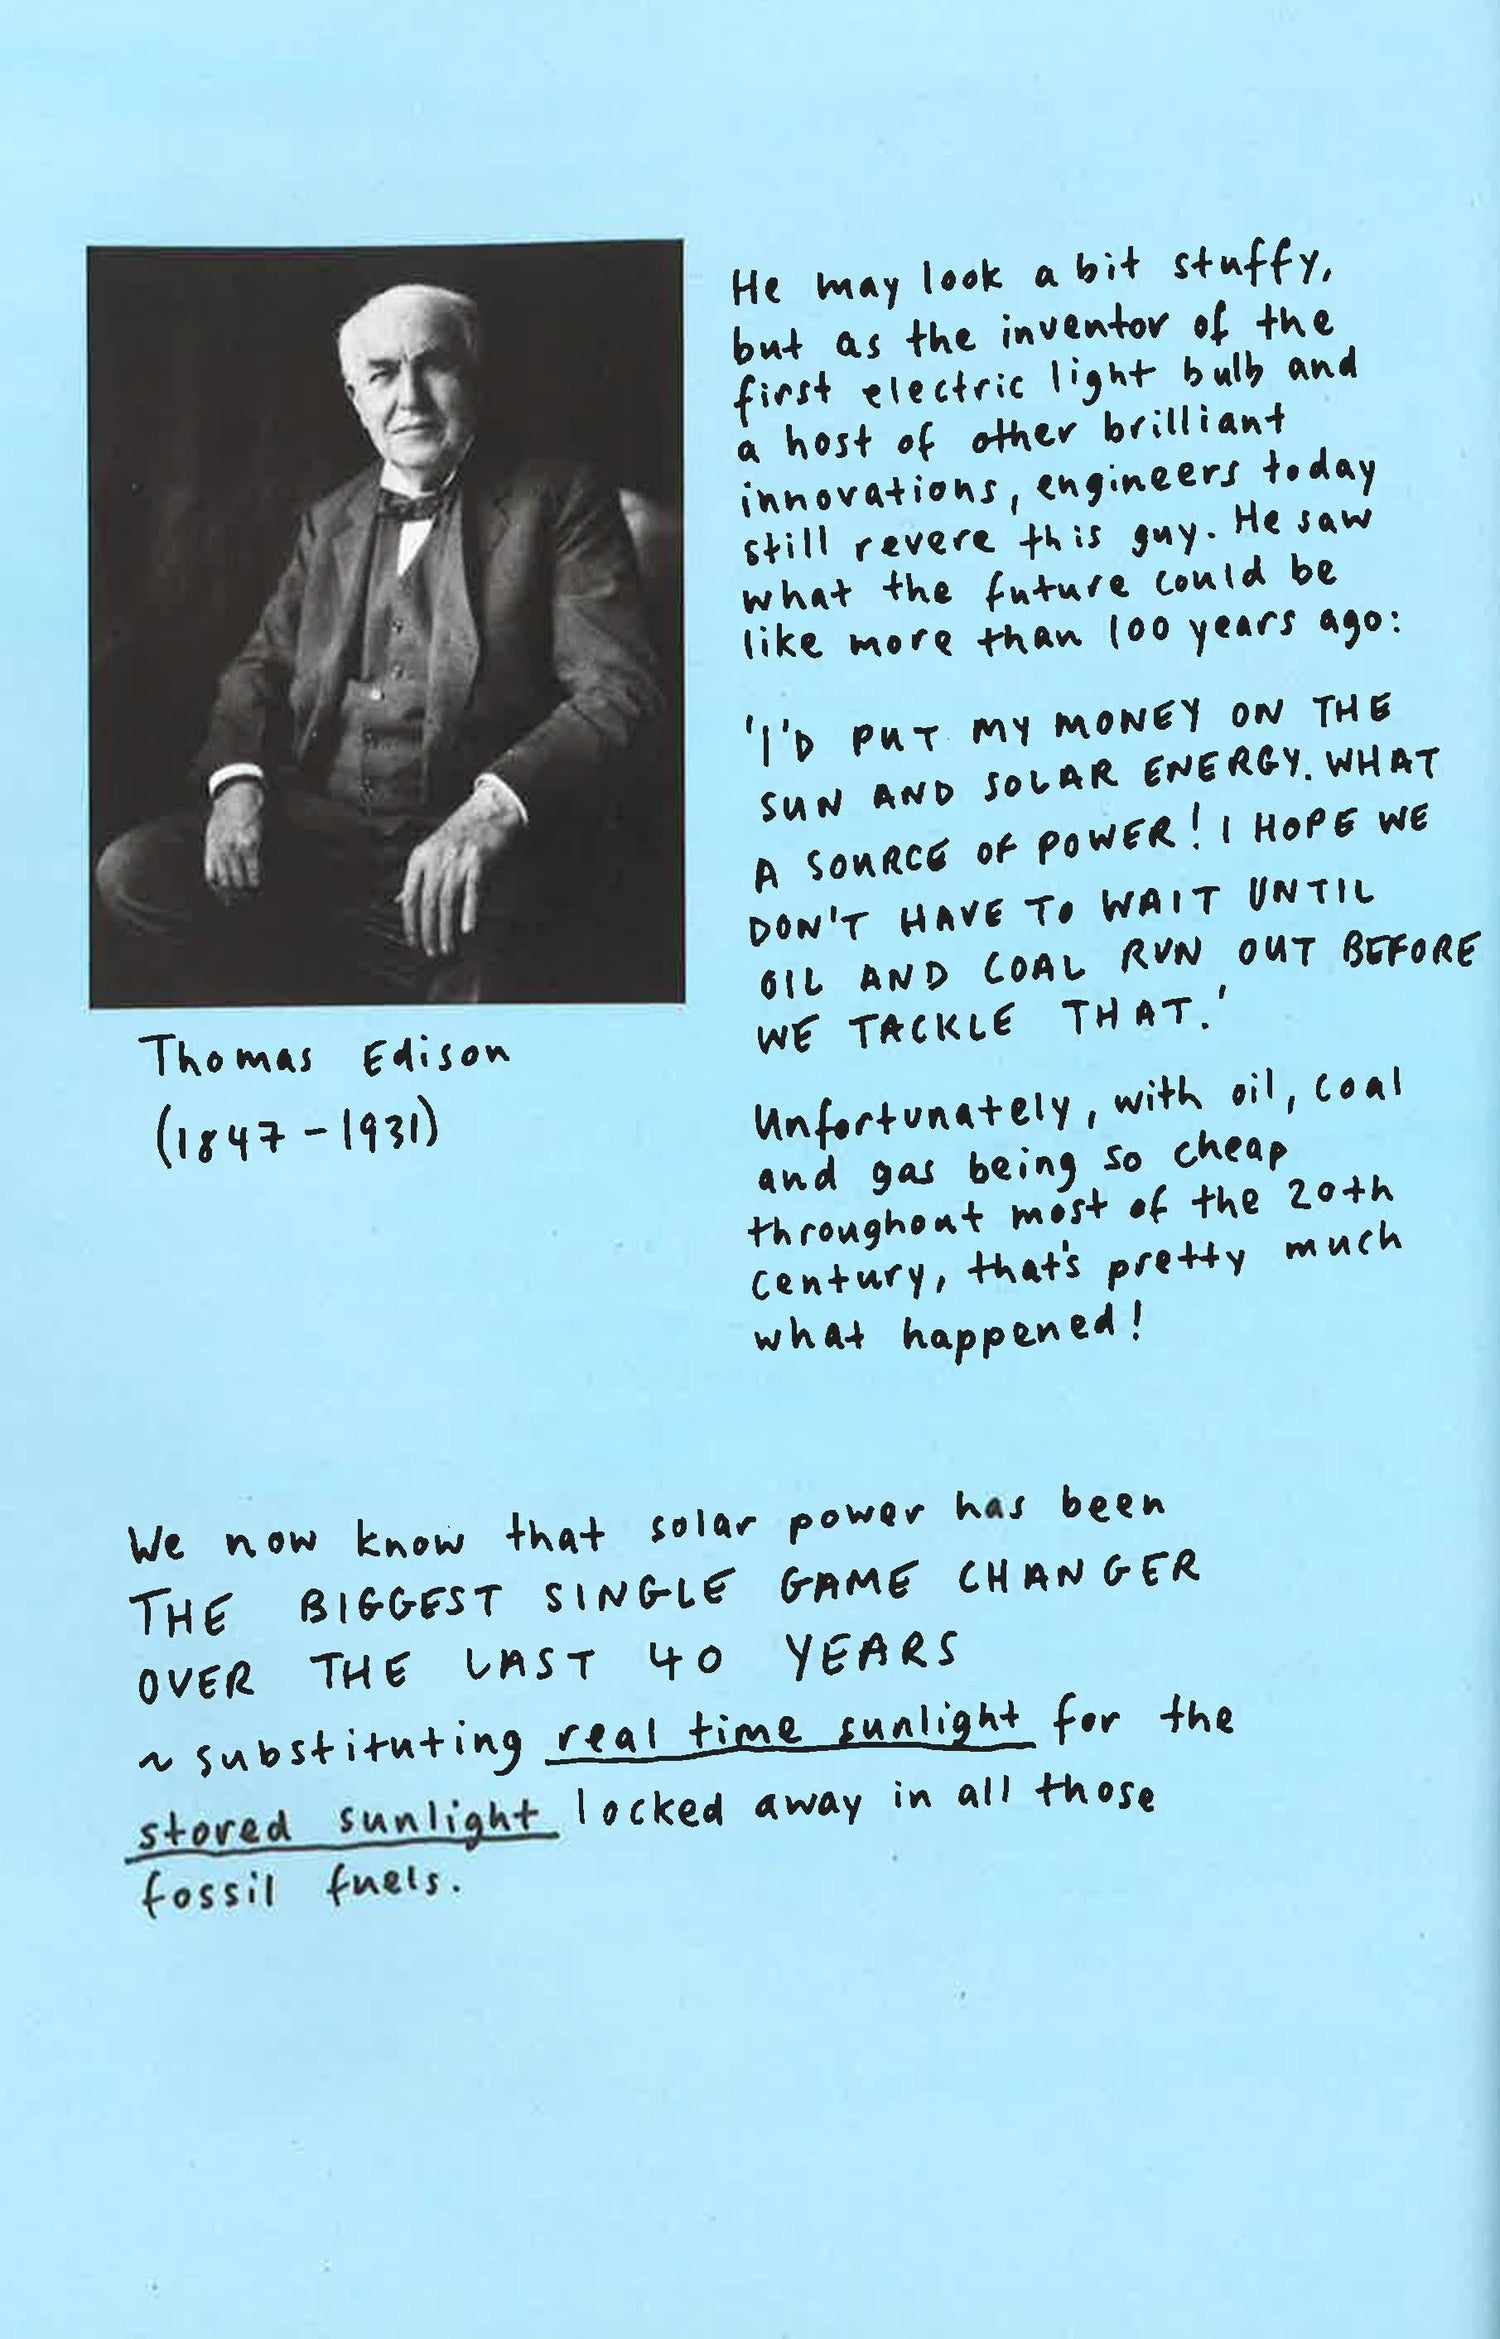 He may look a bit stuffy,
but as the inventor of the
first electric light bulb and
a host of other brilliant
innovations, engineers today
still revere this guy. He saw
what the future could be
like more than 100 years ago:
'I'D PUT MY MONEY ON THE
SUN AND SOLAR ENERGY. WHAT
A SOURCE OF POWER! I HOPE WE
DON'T HAVE TO WAIT UNTIL
OIL AND COAL RUN OUT BEFORE
WE TACKLE THAT.'
Unfortunately, with oil, coal
and gas being so cheap
throughout most of the 20th
century, that's pretty much
what happened!
Thomas Edison
(1847-1931)
We now know that solar power has been
THE BIGGEST SINGLE GAME CHANGER
OVER THE LAST 40 YEARS
~ substituting real time sunlight for the
stored sunlight locked away in all those
fossil fuels.